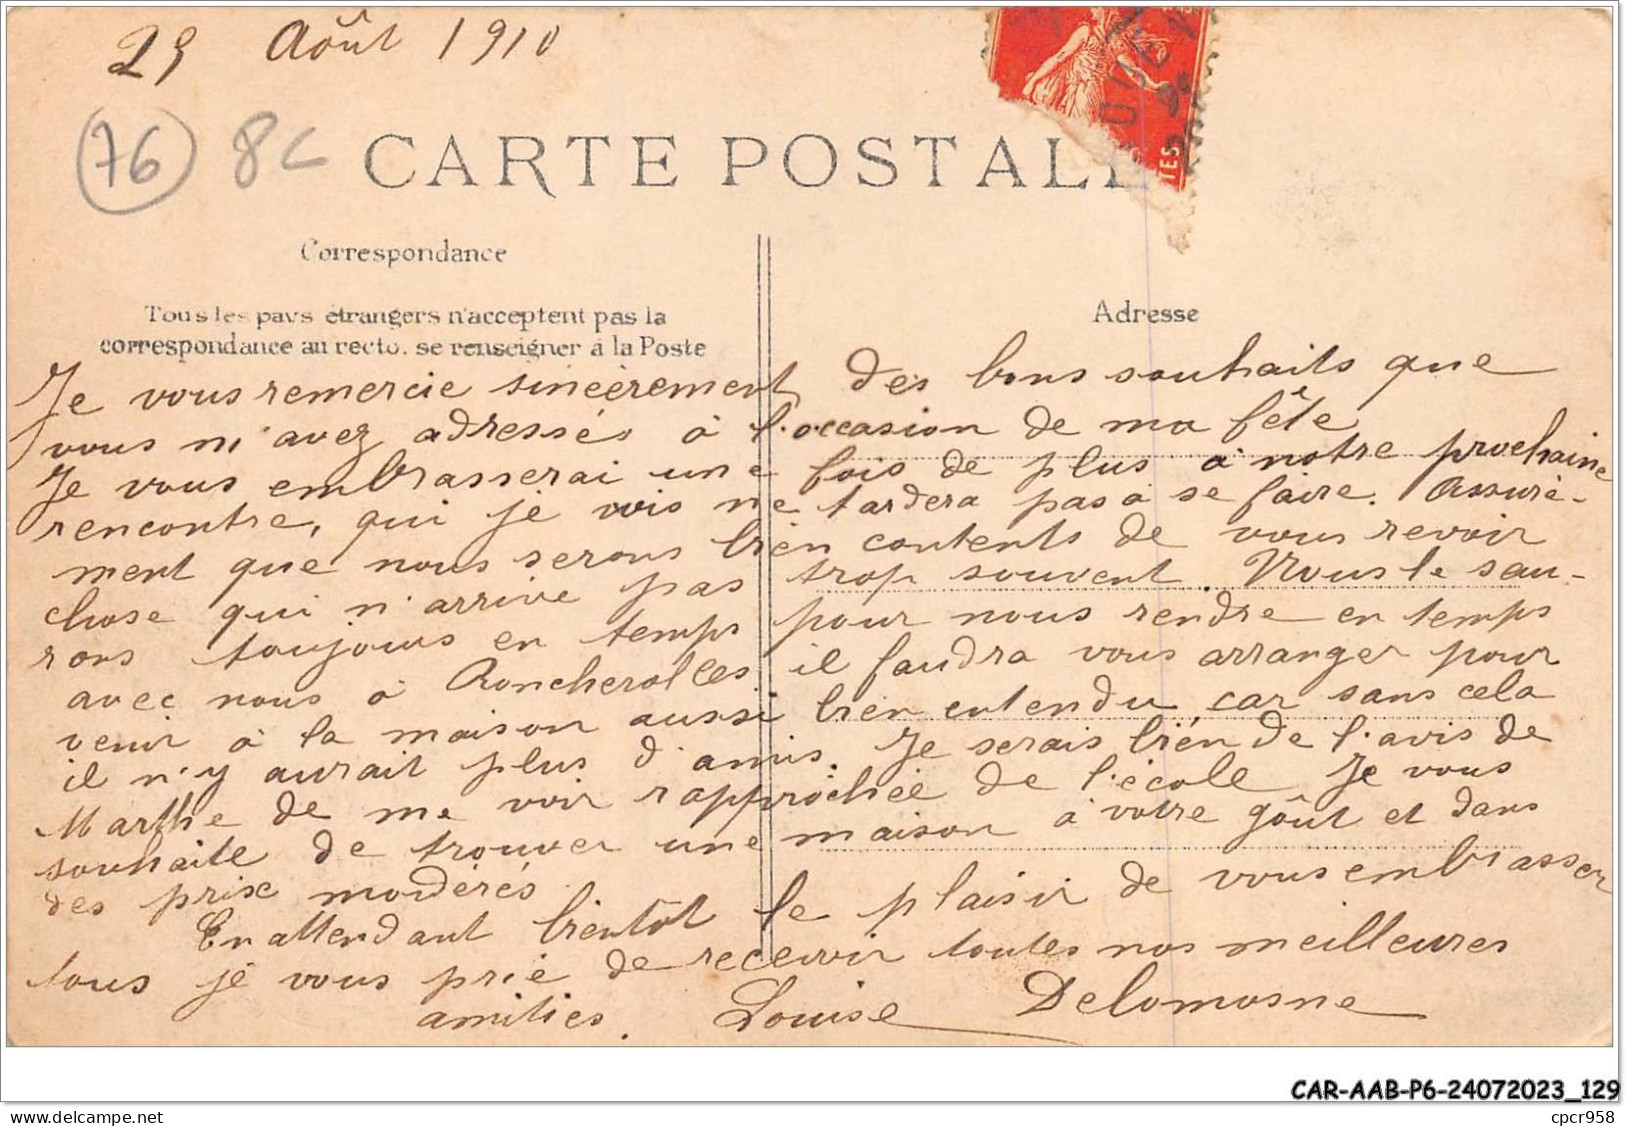 25 Août 1910
76 8c
CARTE POSTALE
TES
Correspondance
Tous les pays étrangers n'acceptent pas la
correspondance au recto. se renseigner à la Poste
Adresse
Je vous remercie sincèrement des bons souhaits que
vous m'avez adressés à l'occasion de ma fête
Je vous embrasserai une fois de plus à notre prochaine
rencontre, qui je vois ne tardera pas à se faire. Assuré-
ment que nous serons bien contents de vous revoir
chose qui n'arrive pas trop souvent. Nous le sau-
rons toujours en temps pour nous rendre en temps
avec nous à Roncherolles il faudra vous arranger pour
venir à la maison aussi bien entendu car sans cela
il n'y aurait plus d'amis. Je serais bien de l'avis de
Marthe de me voir rapprochée de l'école Je vous
souhaite de trouver une maison à votre goût et dans
des prix modérés.
En attendant bientôt le plaisir de vous embrasser
tous je vous prie de recevoir toutes nos meilleures
amitiés. Louise Delomosne
CAR-AAB-P6-24072023_129
cpcr958